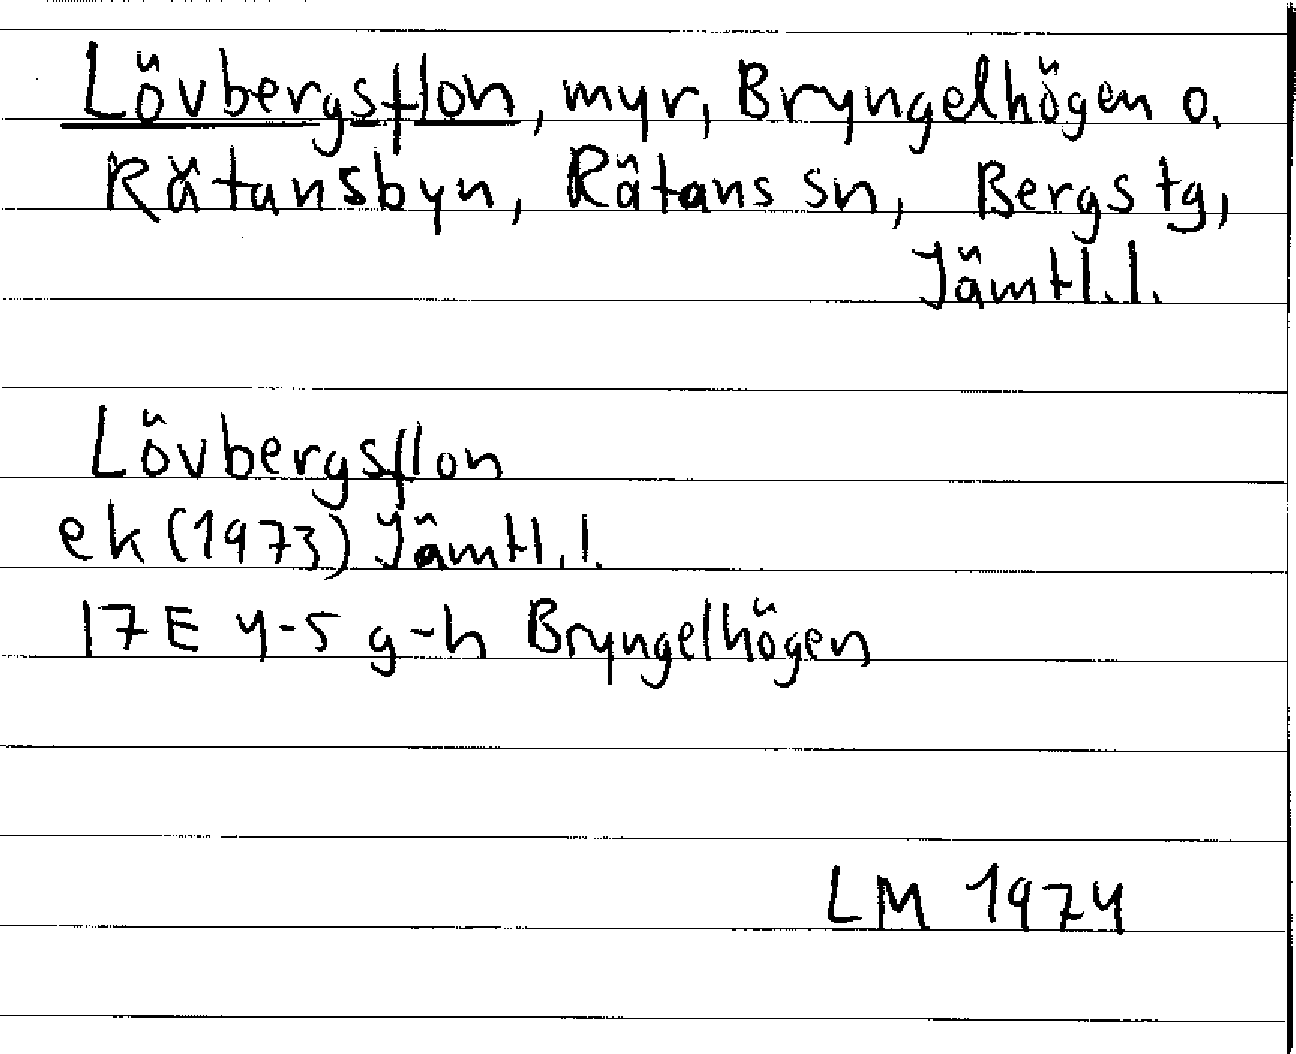 Lövbergsflon, myr, Bryngelhögen o.
Rätansbyn, Rätans sn, Bergs tg,
Jämtl.l.
Lövbergsflon
ek (1973) Jämtl.l.
17E 4-5 g-h Bryngelhögen
LM 1974